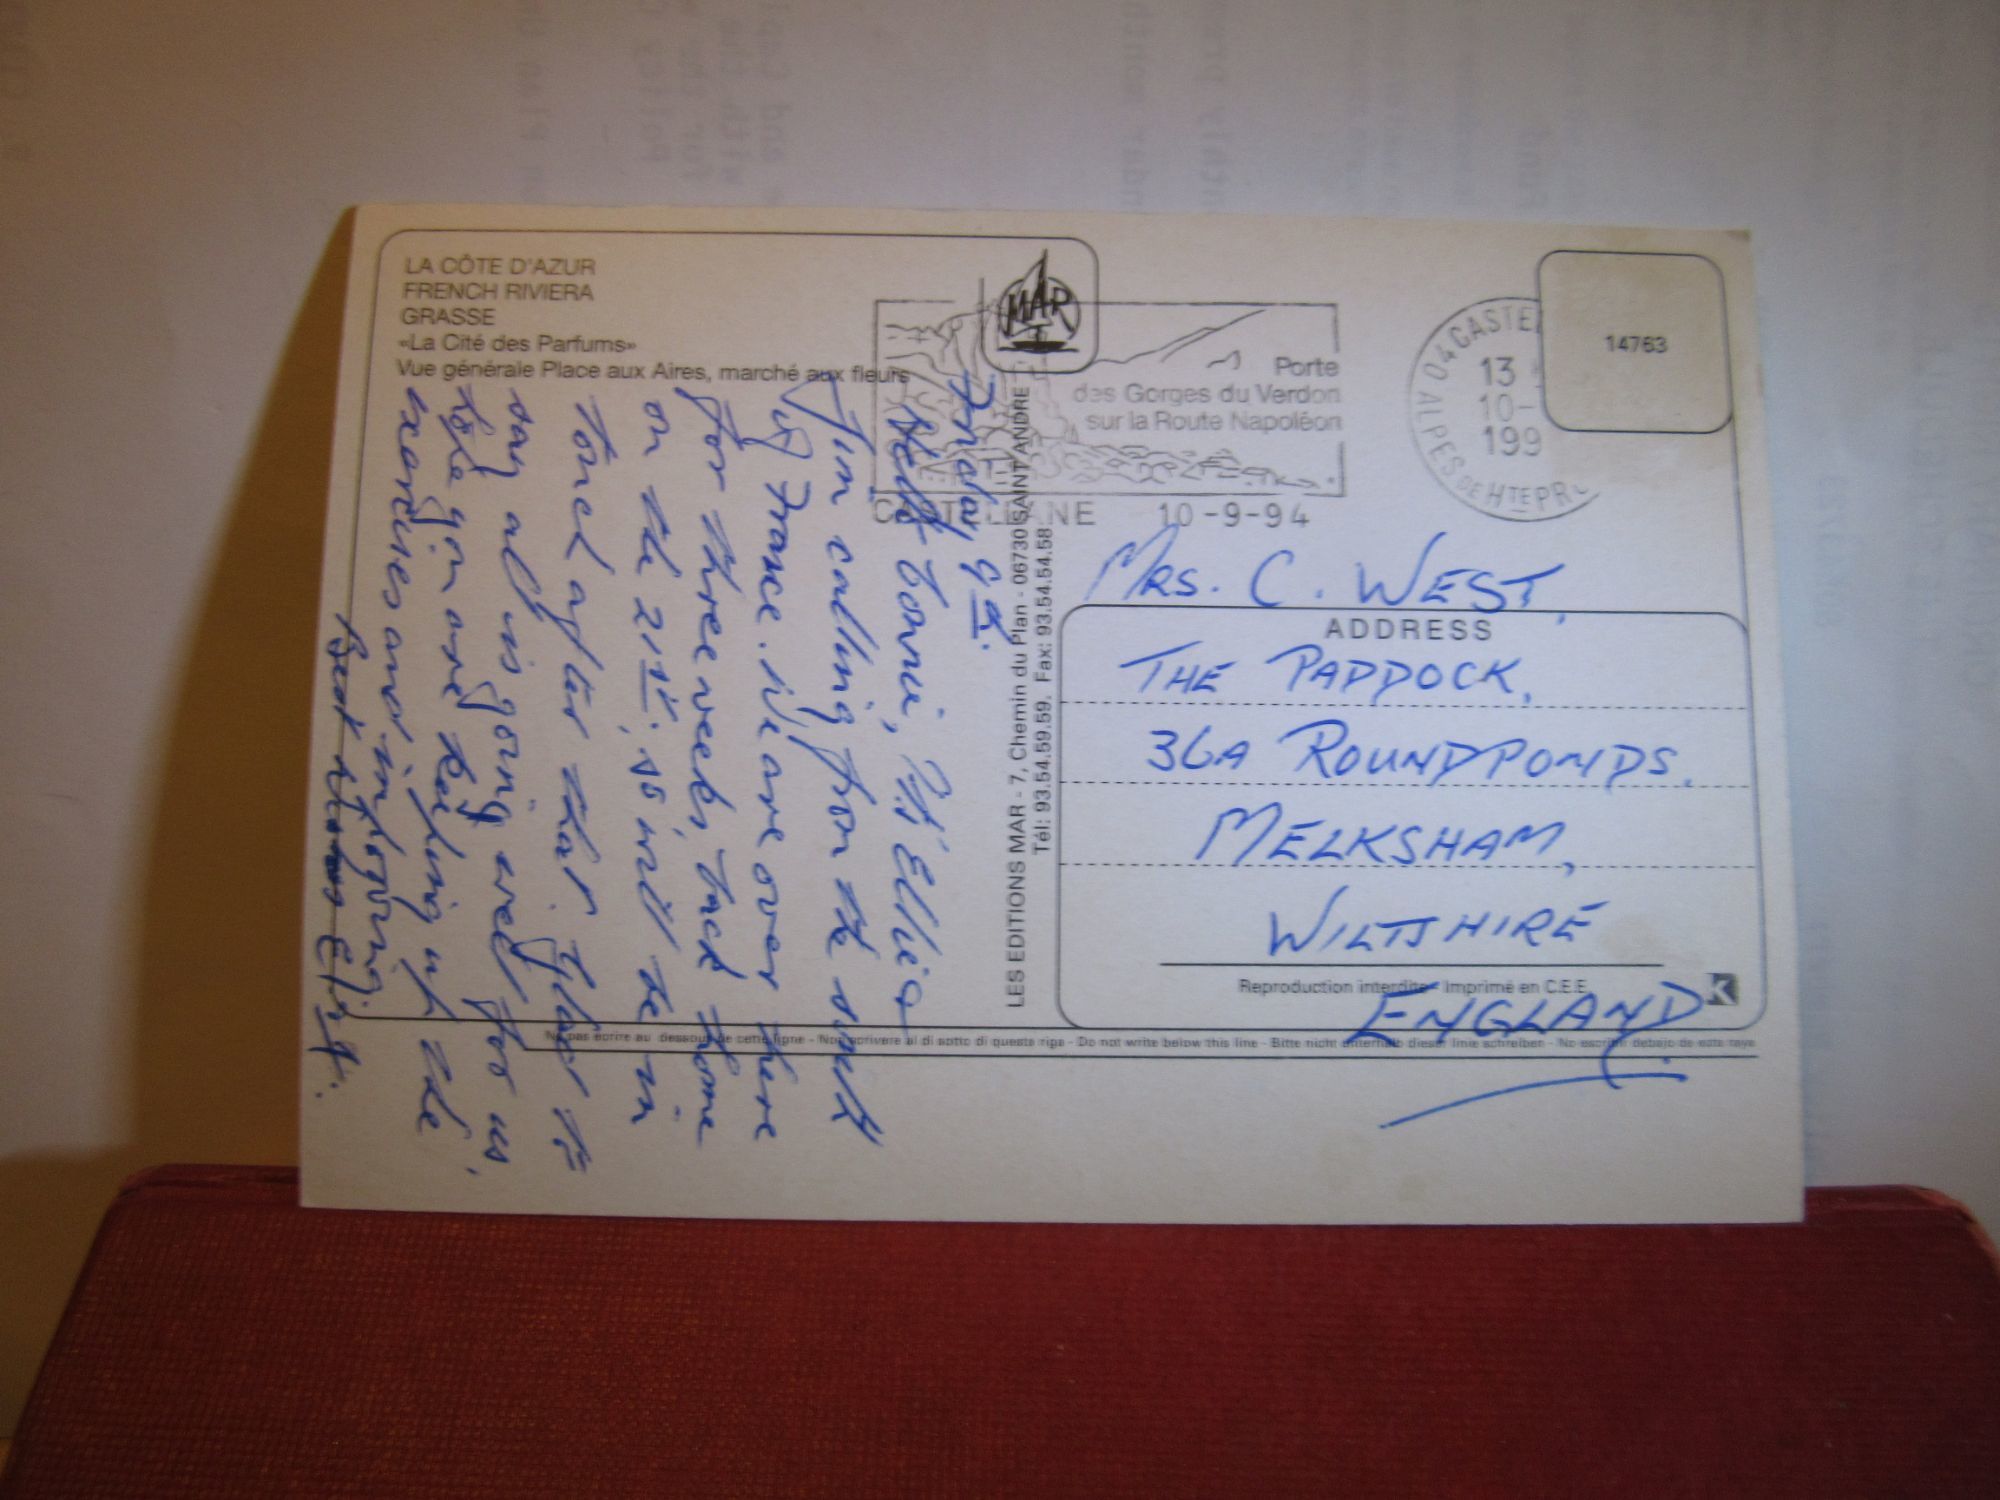 LA CÔTE D'AZUR
FRENCH RIVIERA
GRASSE
«La Cité des Parfums»
Vue générale Place aux Aires, marché aux fleurs
MAR
Porte
des Gorges du Verdon
sur la Route Napoléon
CASTELLANE 10-9-94
04 CASTE
13
10-
199
ALPES DE HTE PR
14763
Friday, 9th.
Hello Connie, it's Ellie
I'm calling from the south
of France. We are over here
for three weeks, back home
on the 21st, so will be in
touch after that. Glad to
say all is going well for us,
hope you are keeping up the
exercises and improving.
Best wishes
LES EDITIONS MAR - 7, Chemin du Plan - 06730 SAINT ANDRE
Tél: 93.54.59.59. Fax: 93.54.54.58
MRS. C. WEST,
ADDRESS
THE PADDOCK,
36A ROUNDPONDS.
MELKSHAM,
WILTSHIRE
Reproduction interdite - Imprimé en C.E.E.
K
ENGLAND
Ne pas écrire au dessous de cette ligne - Non scrivere al di sotto di questa riga - Do not write below this line - Bitte nicht unterhalb dieser linie schreiben - No escribir debajo de esta raya